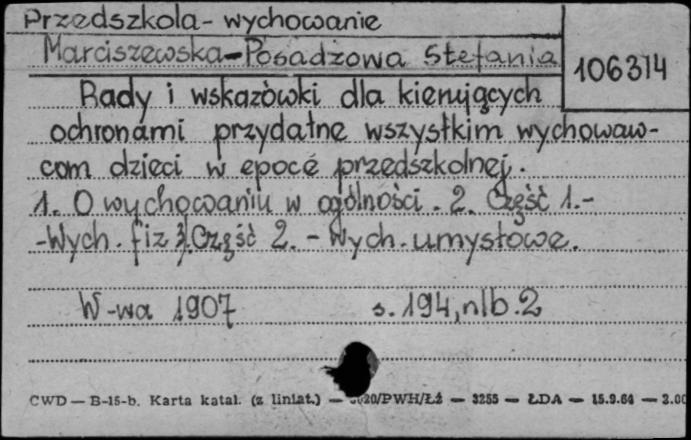 Przedszkola - wychowanie
Marciszewska-Posadzowa Stefania
106314
Rady i wskazówki dla kierujących
ochronami przydatne wszystkim wychowaw-
com dzieci w epoce przedszkolnej.
1. O wychowaniu w ogólności. 2. Część 1.-
-Wych. fiz 3. Część 2. - Wych. umysłowe.
W-wa 1907 s. 194, nlb. 2
CWD — B-15-b. Karta katal. (z liniat.) — /PWH/Łż — 3255 — ŁDA — 15.9.64 — 2.00